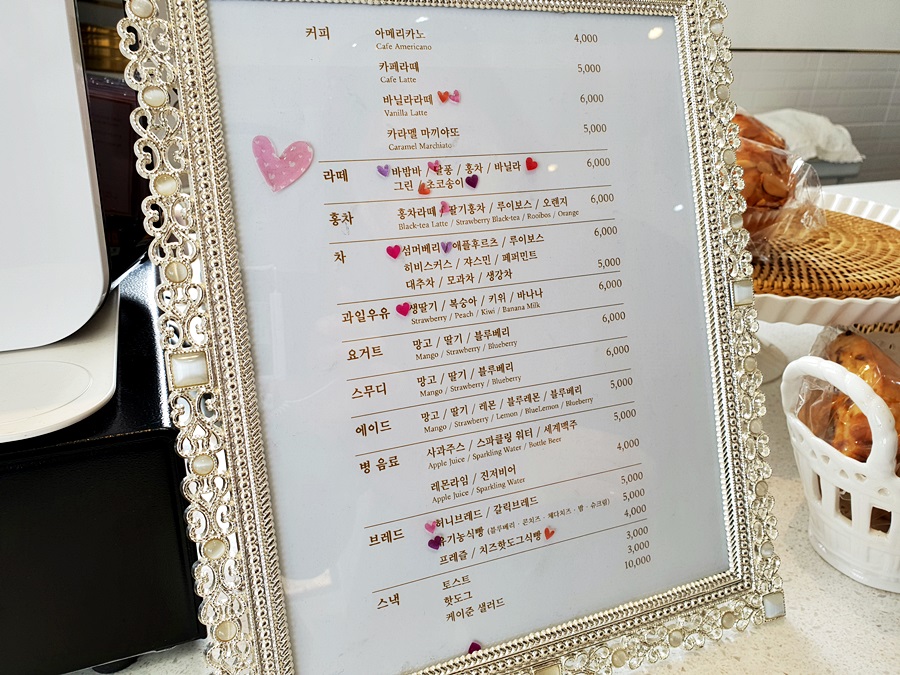 커피 아메리카노 4,000
Cafe Americano
카페라떼 5,000
Cafe Latte
바닐라라떼 6,000
Vanilla Latte
카라멜 마끼야또 5,000
Caramel Marchiato
라떼 바밤바 / 달풍 / 홍차 / 바닐라 6,000
그린 / 초코송이
홍차 홍차라떼 / 딸기홍차 / 루이보스 / 오렌지 6,000
Black-tea Latte / Strawberry Black-tea / Rooibos / Orange
차 섬머베리 / 애플후르츠 / 루이보스 6,000
히비스커스 / 쟈스민 / 페퍼민트
대추차 / 모과차 / 생강차 5,000
과일우유 생딸기 / 복숭아 / 키위 / 바나나 6,000
Strawberry / Peach / Kiwi / Banana Milk
요거트 망고 / 딸기 / 블루베리 6,000
Mango / Strawberry / Blueberry
스무디 망고 / 딸기 / 블루베리 6,000
Mango / Strawberry / Blueberry
에이드 망고 / 딸기 / 레몬 / 블루레몬 / 블루베리 5,000
Mango / Strawberry / Lemon / BlueLemon / Blueberry
병 음료 사과주스 / 스파클링 워터 / 세계맥주 5,000
Apple Juice / Sparkling Water / Bottle Beer
레몬라임 / 진저비어 4,000
Apple Juice / Sparkling Water
브레드 허니브레드 / 갈릭브레드 5,000
유기농식빵 (블루베리 · 콘치즈 · 체다치즈 · 밤 · 슈크림) 5,000
프레즐 / 치즈핫도그식빵 4,000
스낵 토스트 3,000
핫도그 3,000
케이준 샐러드 10,000